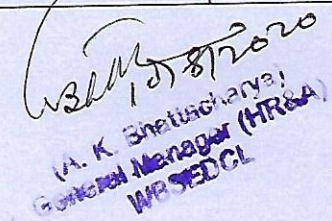 10/8/2020
(A. K. Bhattacharya)
General Manager (HR&A)
WBSEDCL